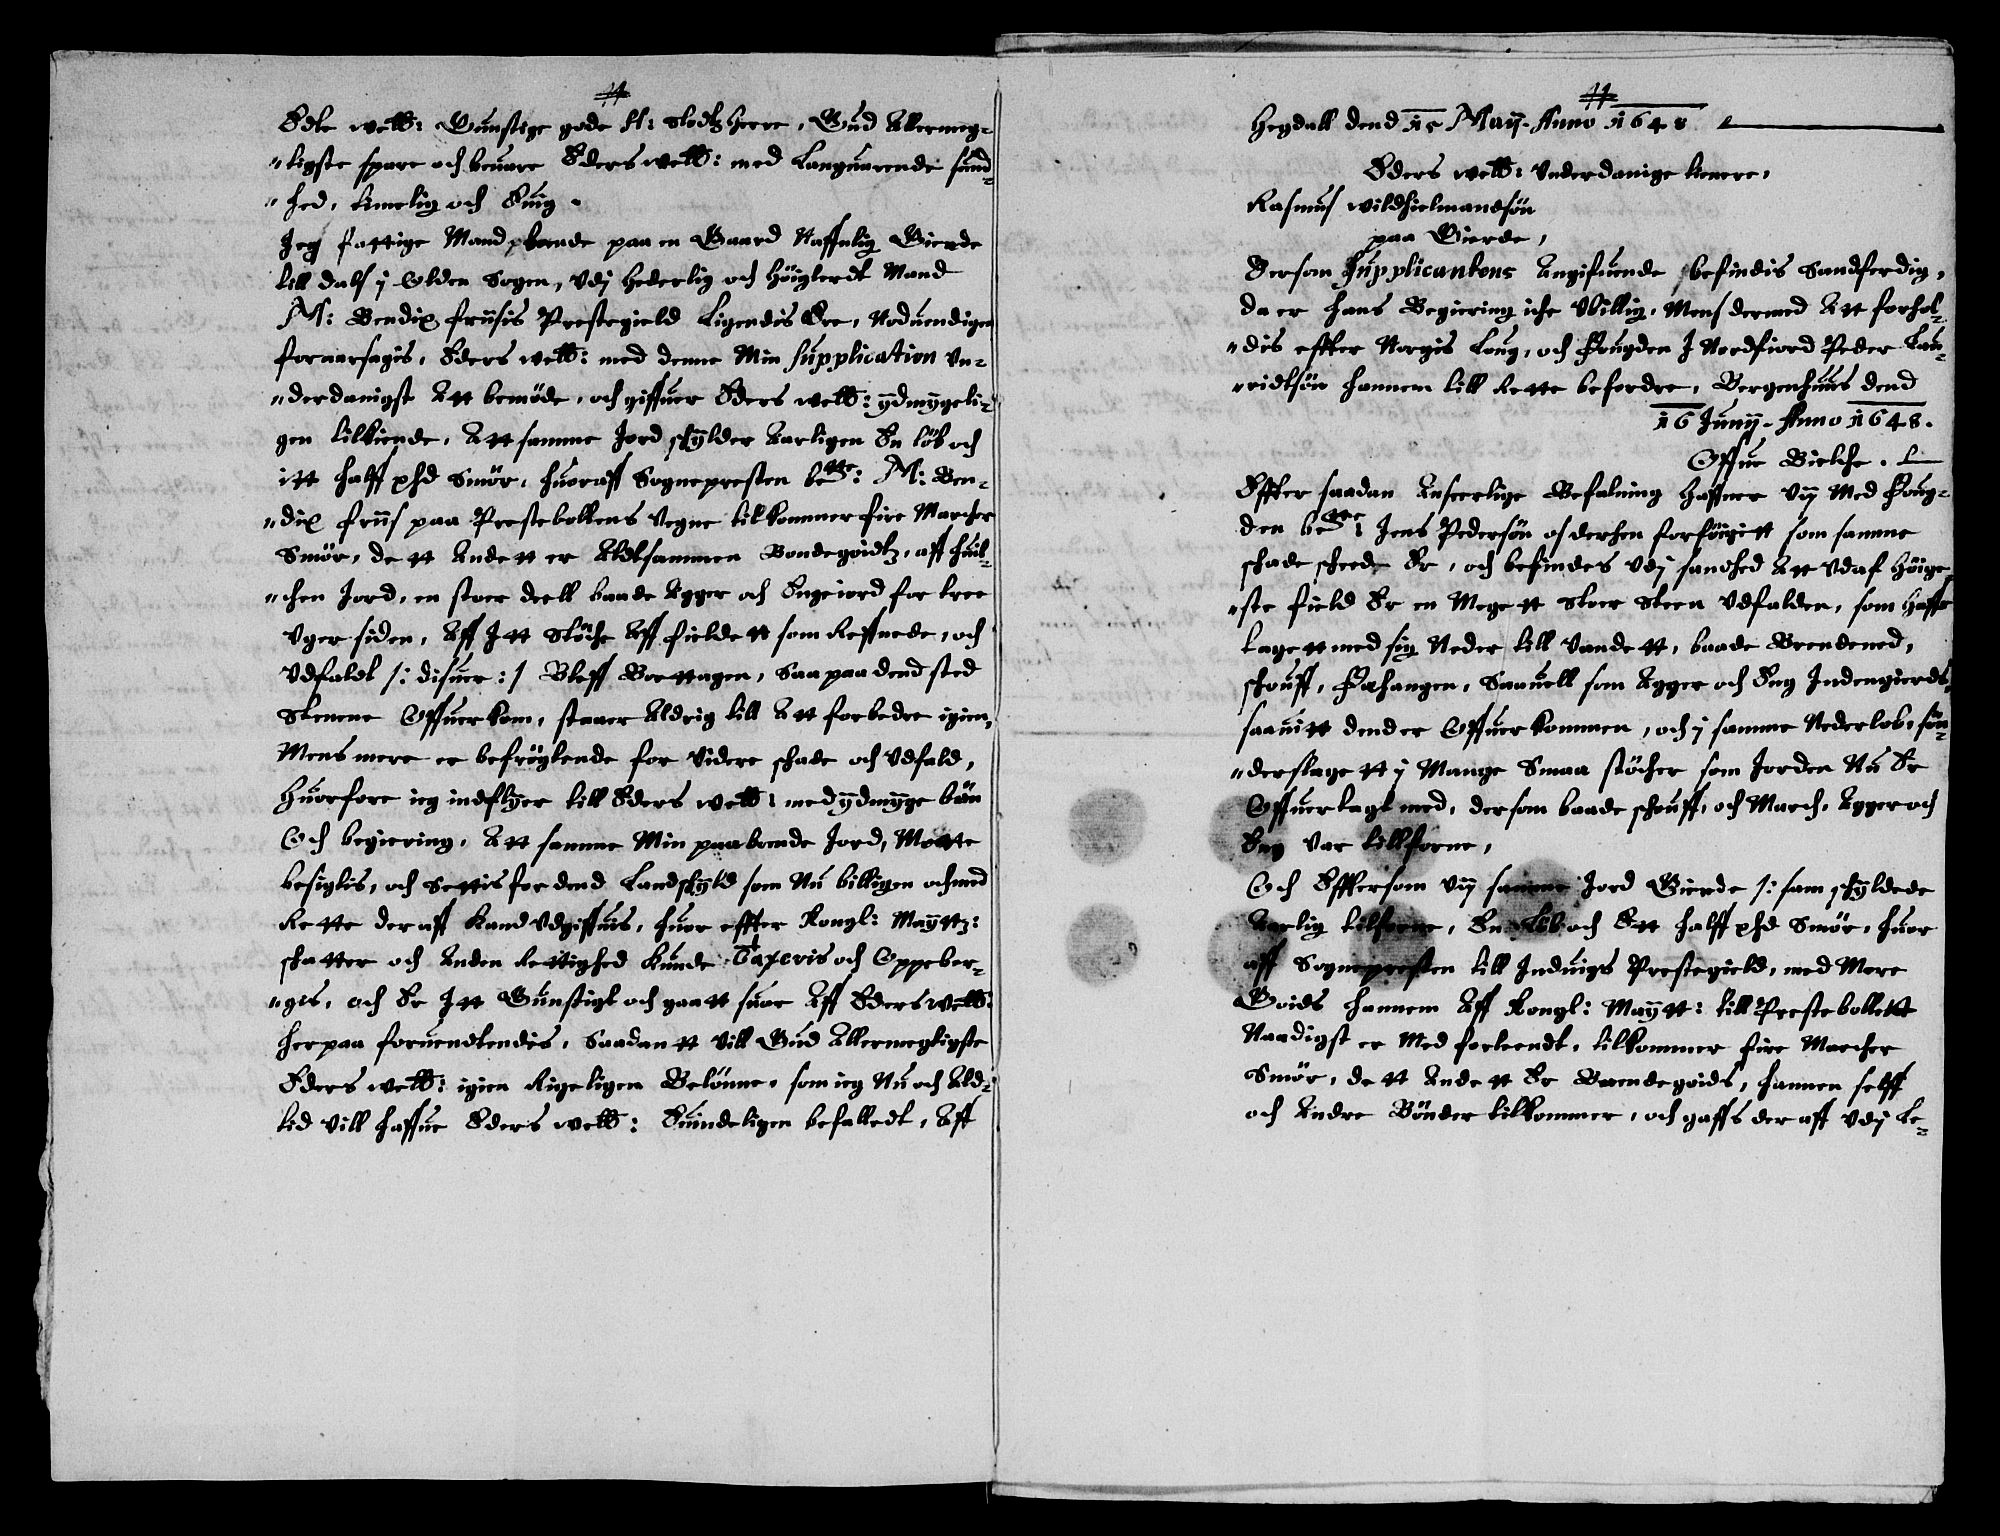 Edle welb: Gunstige gode H: Slodtz Herre, Gud Allermeg-
ligste spare och beuare Eders welb: med Languarende sund-
hed, timelig och Euig.
Jeg fattige Mand boende paa en Gaard Naffnlig Gierde
till dals y Olden Sogen, Vdj Hederlig och Höiglerdt Mand
M: Bendix friisis Prestegield Ligendis Ere, Noduendigen
foraarsagis, Eders welb: med denne Min Supplication Vn-
derdanigst Att bemöde, och giffuer Eders welb: ydmygeli-
gen tilkiende, Att samme Jord skylder Aarligen En löb och
itt halff phd Smör, huoraff Sognepresten bete: M: Ben-
dix friis paa Prestebollens Vegne tilkommer fire Marcher
Smör, dett Andett er Altsammen Bondegoidtz, aff huil-
chen Jord, en stoer deell baade Agger och Engeiord for tree
Vger siden, Aff Jtt Stöche Aff fieldett som Reffnede, och
Vdfaldt /: disuer :/ Bleff Borttagen, Saa paa dend sted
Stenene Offuerkom, staaer Aldrig till Att forbedre igien,
Mens mere er befröglende for Videre schade och Vdfald,
Huorfore ieg indflyer till Eders welb: med ydmyge bön
Och begiering, Att samme Min paaboende Jord, Motte
besigtis, och Settis for dend Landskyld som Nu billigen och med
Rette deraff Kand Vdgiffuis, huor effter Kongl: Mayttz:
schatter och Anden Rettighed Kunde Taxeris och Oppeber-
gis, och Er Jtt Gunstigt och gaatt suar Aff Eders welb:
herpaa foruendtendis, Saadantt Vill Gud Allermegligste
Eders welb: igien Rigeligen Belönne, som ieg Nu och Ald-
tid Vill haffue Eders welb: Euindeligen befalledt, Aff
Hegdall dend 15 Maÿ. Anno 1648
Eders welb: Vnderdanige tienere,
Rasmus Wildhielmandsön
paa Gierde,
Dersom Supplicantens Angifuende befindis Sandferdig,
da er hans Begiering iche Vbillig, Mens dermed Att forhol-
dis effter Norgis Loug, och Fougden J Nordfiord Peder Lau-
ridtsön hannem till Rette befordre, Bergenhuus dend
16 Junÿ. Anno 1648.
Offue Bielche.
Effter saadan Anseerlige Befalning Haffuer Vij Med Foug-
den bete: Jens Pedersön os derhen forföigitt som samme
schade scheede Er, och befindes Vdj sandhed Att Vdaf Höige-
ste field Er en Megett Stoer Steen Vdfalden, som Haffr
tagett med sig Neder till Vandett, baade Brendeued,
schouff, Fæhangen, Saauell som Agger och Eng Jndengierds,
saauitt dend er Offuerkommen, och y samme Nederlob, sön-
derslagett y Mange Smaa stöcher som Jorden Nu Er
Offuerlagt med, dersom baade schouff, och March, Agger och
Eng Var tillforne,
Och Efftersom Vij samme Jord Gierde /: som schyldede
Aarlig tilforne, En Löb och Ett halff phd Smör, huor
aff Sognepresten till Jnduigs Prestegield, med Mere
Goids hannem Aff Kongl: Maytt: till Prestebollett
Naadigst er Med forleendt, tilkommer fire Marcher
Smör, dett Andett Er Boendegoids, hannen selff
och Andre Bönder tilkommer, och gaffs deraff Vdj Le-